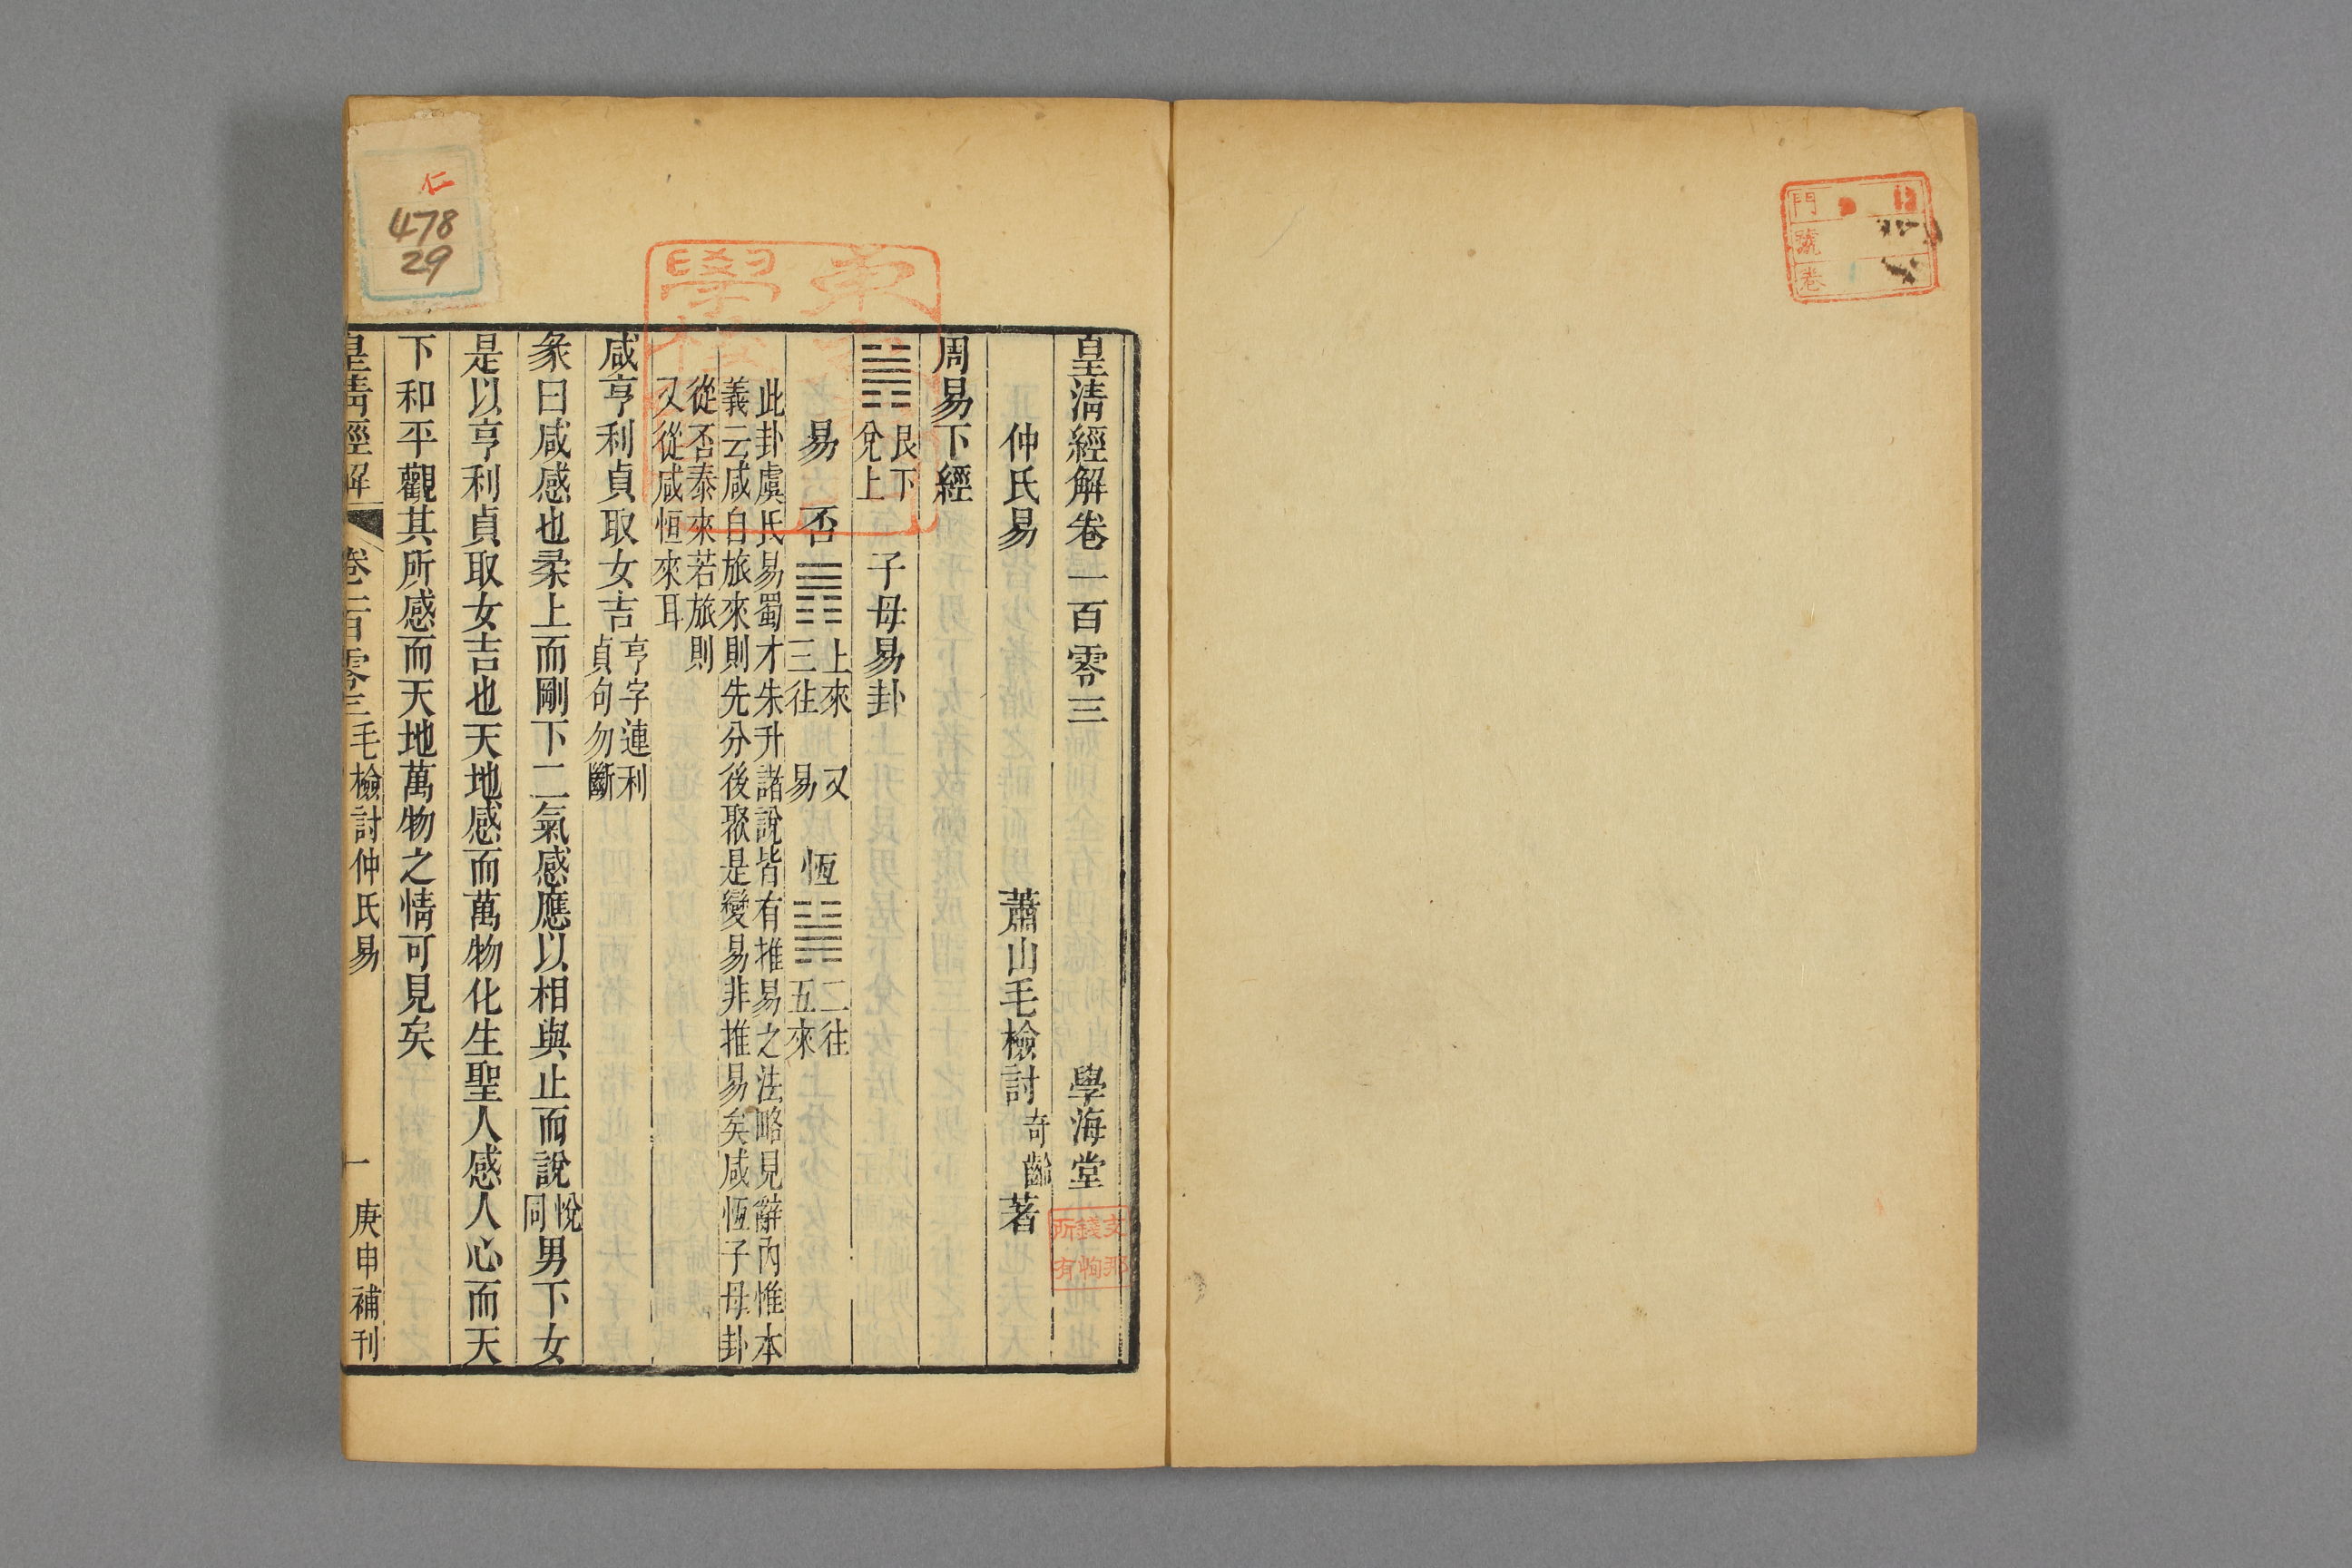 皇清經解卷一百零三 學海堂
仲氏易 蕭山毛檢討奇齡著
周易下經
䷞艮下兌上 子母易卦
易 否䷋上來三往 又易 恆䷟二往五來
此卦虞氏易蜀才朱升諸說皆有推易之法略見辭內惟本
義云咸自旅來則先分後聚是變易非推易矣咸恆子母卦
從否泰來若旅則
又從咸恆來耳
咸亨利貞取女吉亨字連利貞句勿斷
彖曰咸感也柔上而剛下二氣感應以相與止而說悅同男下女
是以亨利貞取女吉也天地感而萬物化生聖人感人心而天
下和平觀其所感而天地萬物之情可見矣
皇清經解 卷一百零三 毛檢討仲氏易 一 庚申補刊
仁
478
29
門
號
卷
支那
錢恂
所有